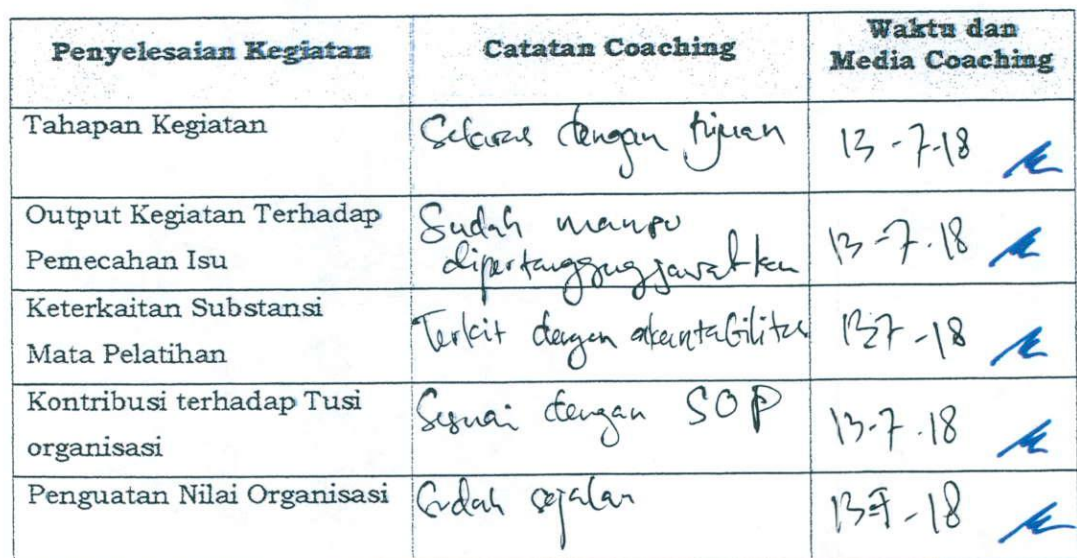 Penyelesaian Kegiatan
Catatan Coaching
Waktu dan
Media Coaching
Tahapan Kegiatan
Selaras dengan tujuan
13-7-18
Output Kegiatan Terhadap
Pemecahan Isu
Sudah mampu
dipertanggungjawabkan
13-7.18
Keterkaitan Substansi
Mata Pelatihan
Terkait dengan akuntabilitas
13-7-18
Kontribusi terhadap Tusi
organisasi
Sesuai dengan SOP
13-7.18
Penguatan Nilai Organisasi
Sudah sejalan
13-7-18